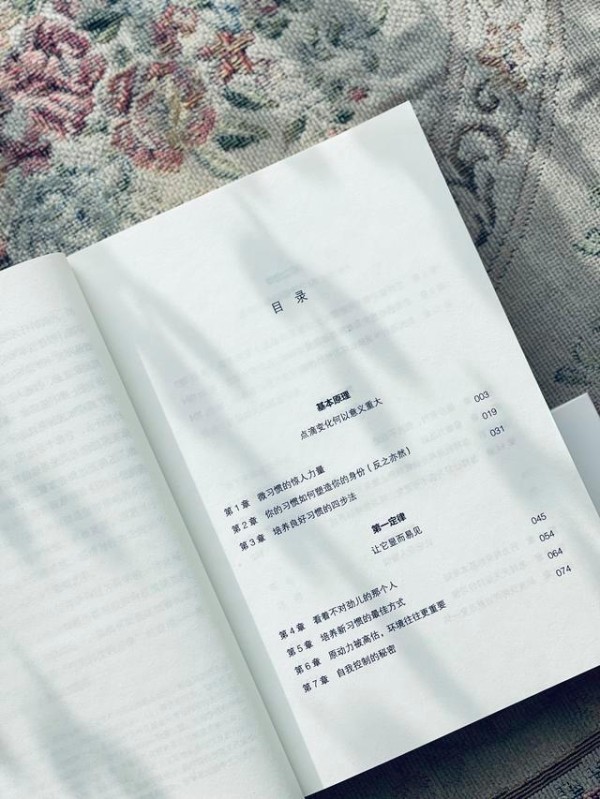 目录
基本原理
点滴变化何以意义重大
第1章 微习惯的惊人力量 003
第2章 你的习惯如何塑造你的身份（反之亦然） 019
第3章 培养良好习惯的四步法 031
第一定律
让它显而易见
第4章 看着不对劲儿的那个人 045
第5章 培养新习惯的最佳方式 054
第6章 原动力被高估，环境往往更重要 064
第7章 自我控制的秘密 074